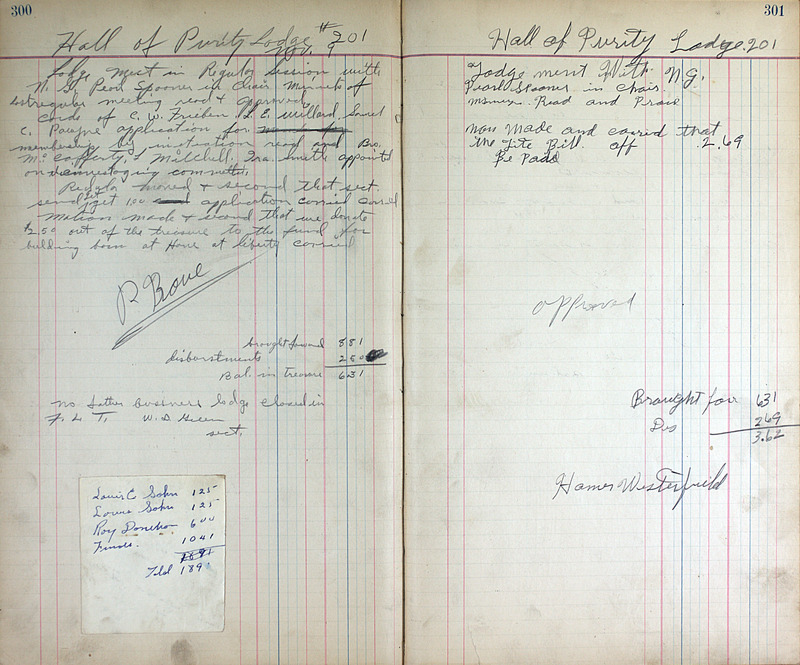 300
Hall of Purity Lodge #201
Nov. 9
Lodge meet in Regular session with
N. G. Pearl Spooner in Chair Minutes of
last regular meeting read & approved
Cards of C. W. Frieben L. E. Willard, Samel
C. application for
membership by read and Bro.
McCafferty, Mitchell, Ira Smith appointed
on committee.
moved & second that sect.
send & get 100 application carried
Motion made & second that we donate
$2.50 out of the treasure to the fund for
building barn at Home at liberty carried
P. Bone
brought forward 881
disburstments 250
Bal. in treasure 631
no father business lodge closed in
F. L. T. W. D. Green
sect.
Louis C Sohn 125
Louis Sohn 125
Roy Donehoo 600
1041
1891
Totel 1891
301
Hall of Purity Lodge. 201
Lodge ment With N.G.
Pearl Spooner in Chair
Read and
Made and carred that
the Lite Bill off 2.69
Be Paid
approved
Brought for 631
Dis 269
3.62
Homer Westerfield